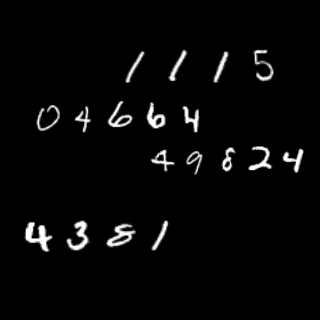 1115
04664
49824
4381